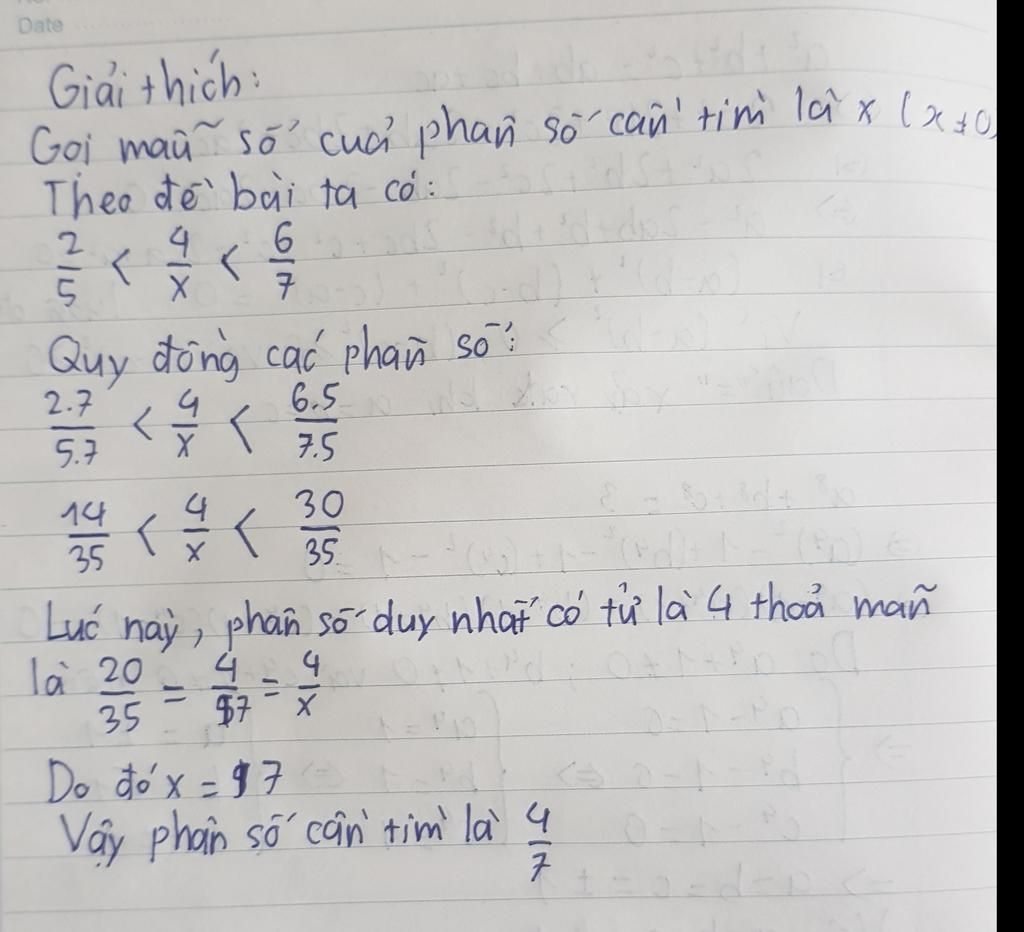 Date
Giải thích:
Gọi mẫu số của phân số cần tìm là x (x ≠ 0
Theo đề bài ta có:
2/5 < 4/x < 6/7
Quy đồng các phân số:
2.7/5.7 < 4/x < 6.5/7.5
14/35 < 4/x < 30/35
Lúc này, phân số duy nhất có tử là 4 thoả mãn
là 20/35 = 4/7 = 4/x
Do đó x = 7
Vậy phân số cần tìm là 4/7